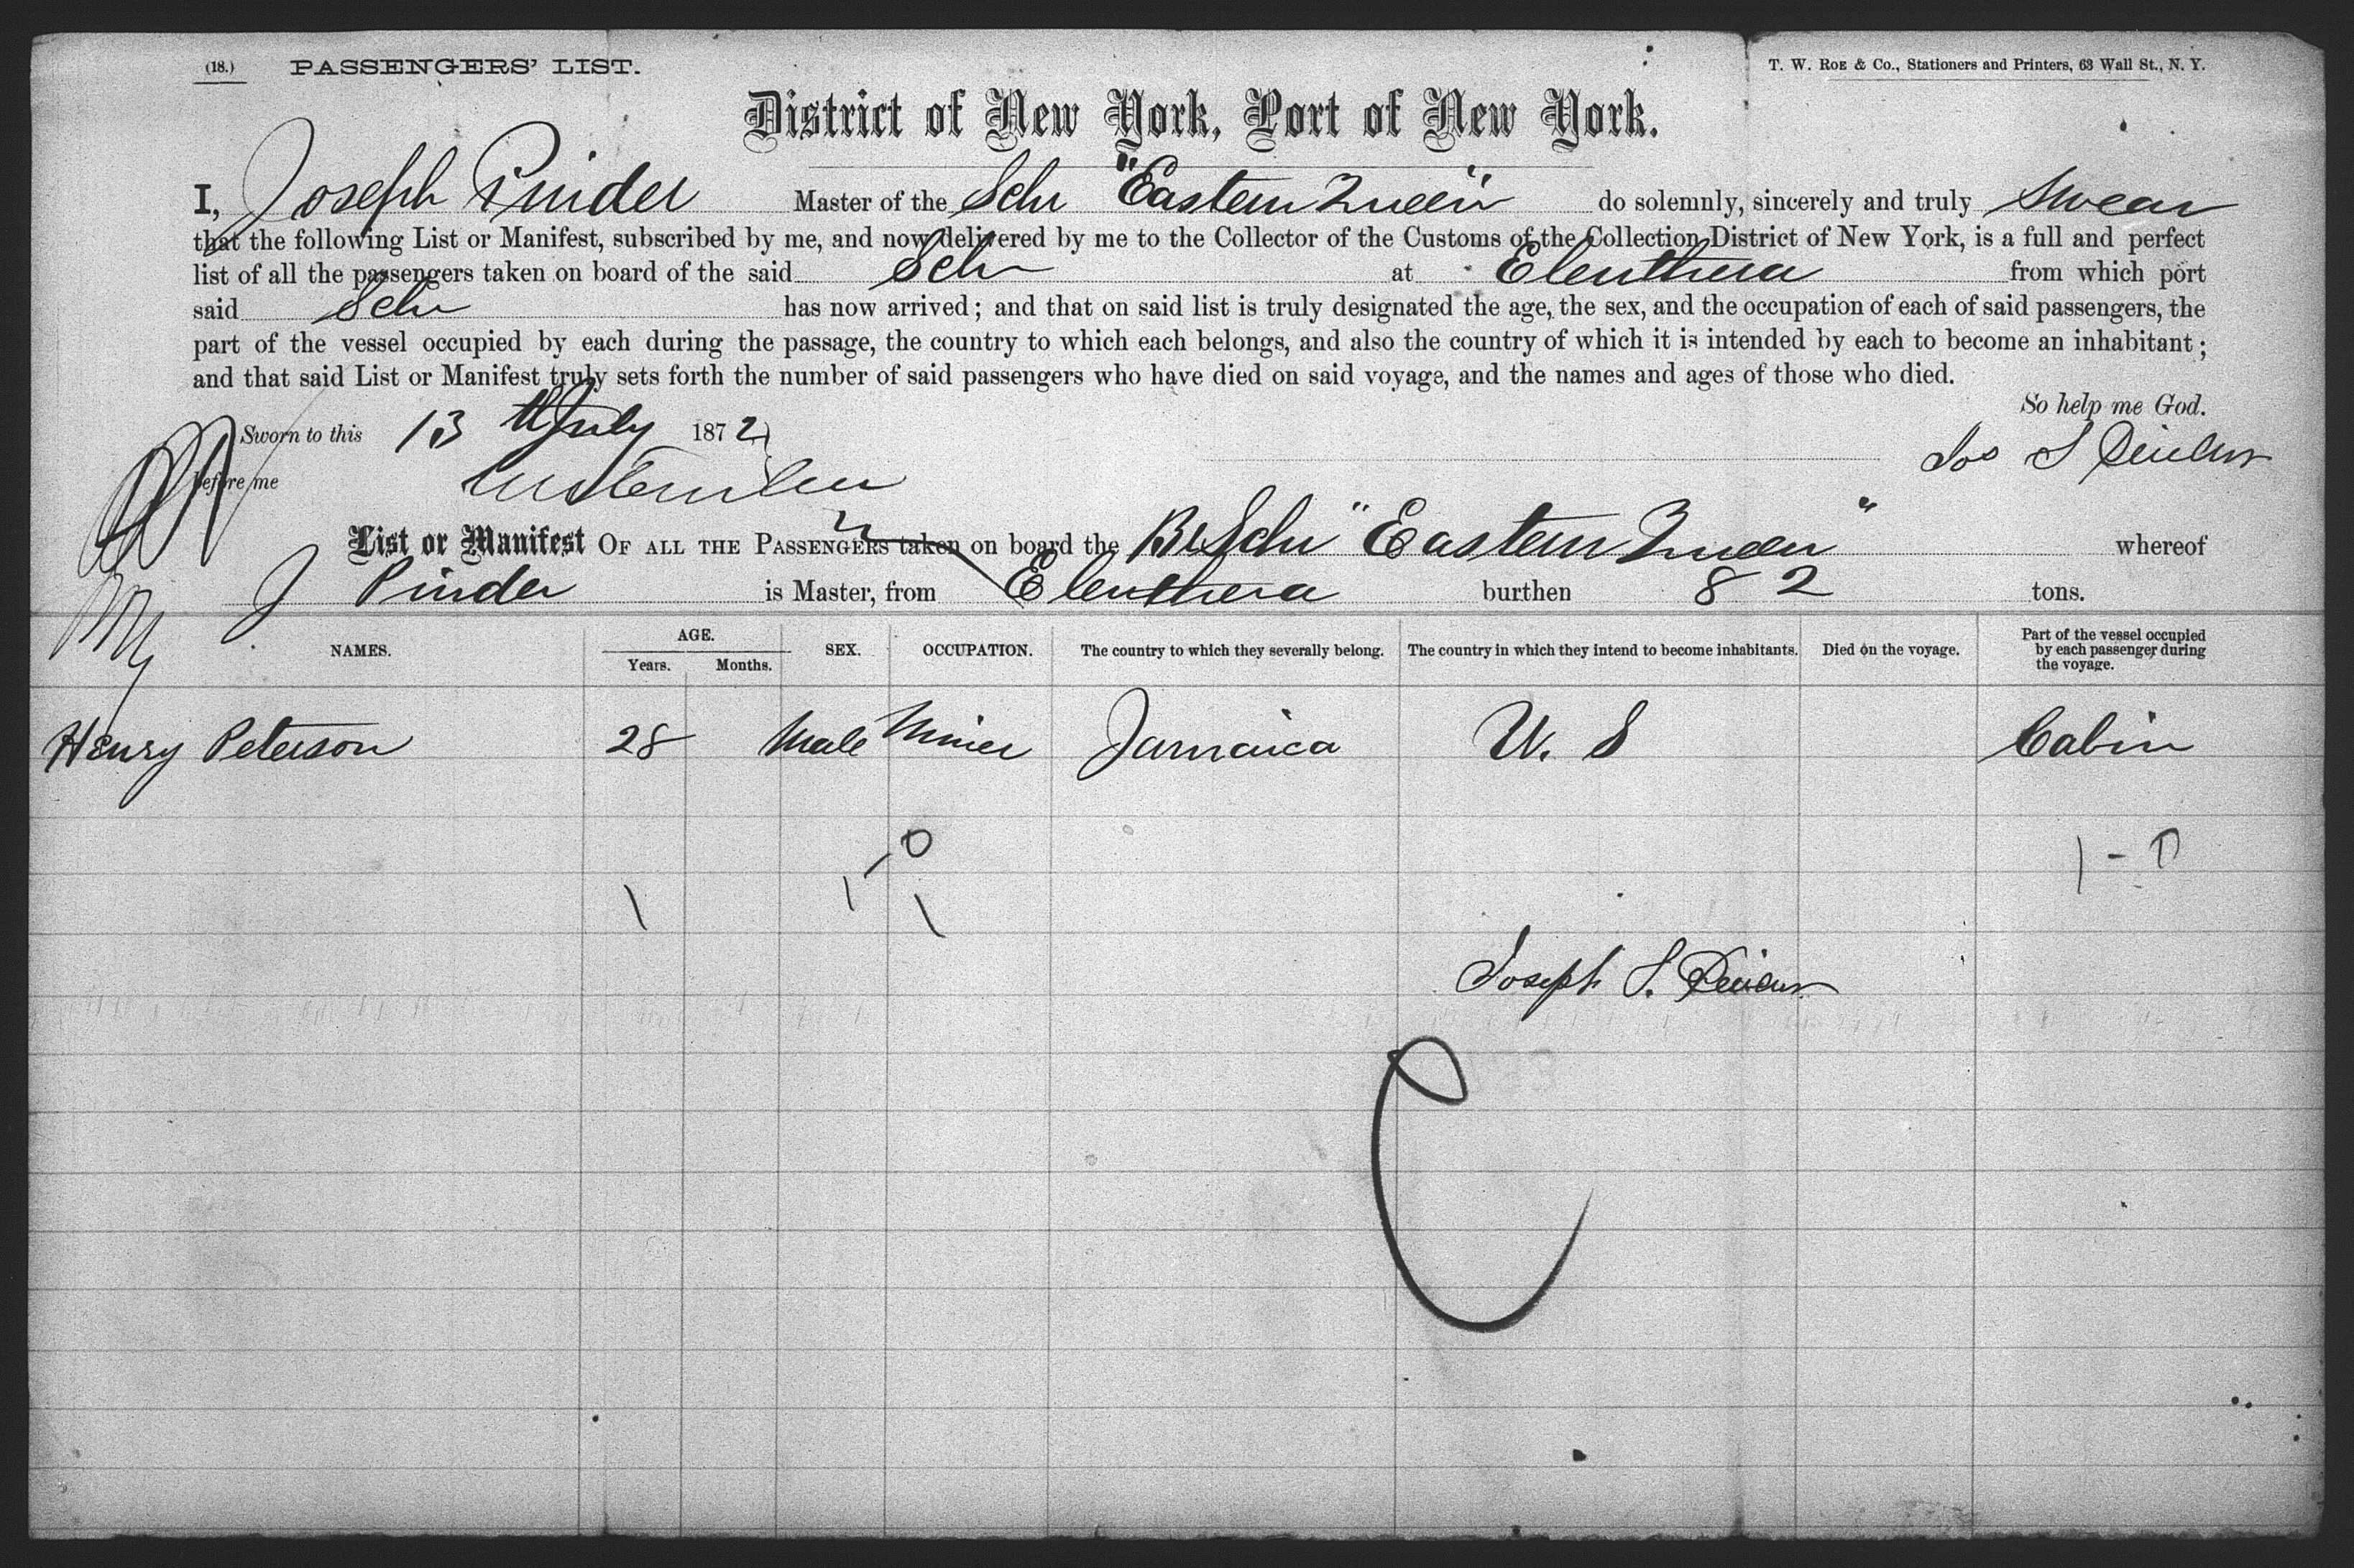 (18.) PASSENGERS' LIST.
T. W. Roe & Co., Stationers and Printers, 63 Wall St., N. Y.
District of New York, Port of New York.
I, Joseph Pinder Master of the Schr "Eastern Queen" do solemnly, sincerely and truly swear
that the following List or Manifest, subscribed by me, and now delivered by me to the Collector of the Customs of the Collection District of New York, is a full and perfect
list of all the passengers taken on board of the said Schr at Eleuthera from which port
said Schr has now arrived; and that on said list is truly designated the age, the sex, and the occupation of each of said passengers, the
part of the vessel occupied by each during the passage, the country to which each belongs, and also the country of which it is intended by each to become an inhabitant;
and that said List or Manifest truly sets forth the number of said passengers who have died on said voyage, and the names and ages of those who died.
So help me God.
Sworn to this 13th July 1872
Jos S Pinder
before me
List or Manifest OF ALL THE PASSENGERS taken on board the Br Schr "Eastern Queen" whereof
J Pinder is Master, from Eleuthera burthen 82 tons.
NAMES. AGE. Years. Months. SEX. OCCUPATION. The country to which they severally belong. The country in which they intend to become inhabitants. Died on the voyage. Part of the vessel occupied by each passenger during the voyage.
Henry Peterson 28 Male Miner Jamaica U. S Cabin
1-0 1-0
1 1
Joseph S. Pinder